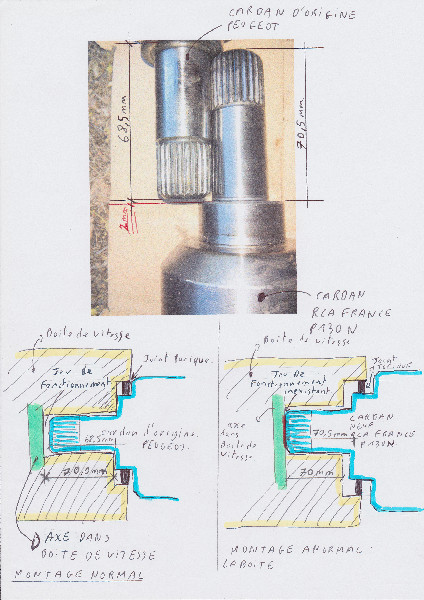 CARDAN D'ORIGINE
PEUGEOT
68,5mm
70,5mm
2mm
CARDAN
RCA FRANCE
P130N
Boite de vitesse
Jeu De
Fonctionnement
Joint torique.
cardan d'origine.
68.5mm
PEUGEOT.
70,5mm
AXE DANS
BOITE DE VITESSE
MONTAGE NORMAL
Boite De vitesse
Jeu De
Fonctionnement
inexistant
Joint
axe
dans
Boite de
vitesse
CARDAN
NEUF
70,5mm
RCA FRANCE
P130N
70mm
MONTAGE ANORMAL :
LABOITE